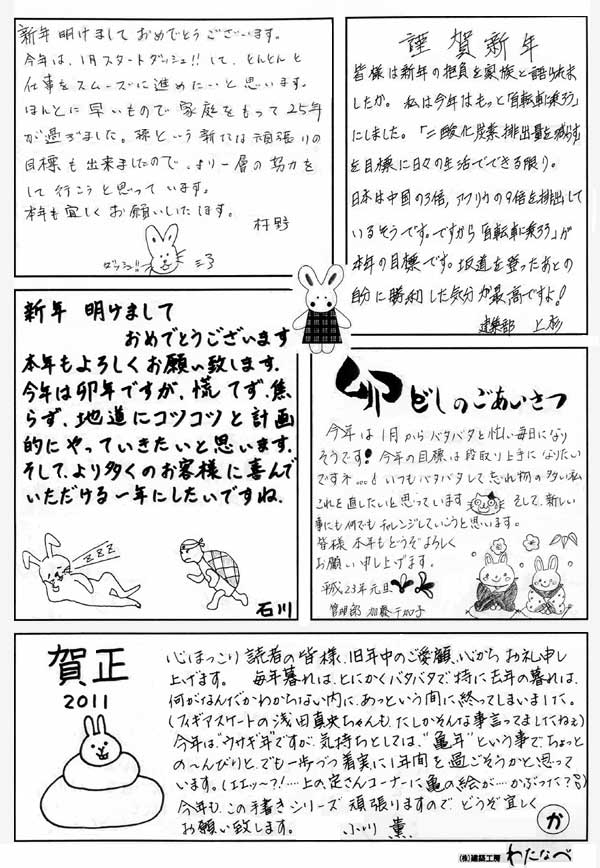 新年明けましておめでとうございます。
今年は、1月スタートダッシュ!!して、とんとんと
仕事をスムーズに進めたいと思います。
ほんとに早いもので家庭をもって25年
が過ぎました。孫という新たな頑張りの
目標も出来ましたので、より一層の努力を
して行こうと思っています。
本年も宜しくお願いいたします。
杉野
ダッシュ!!
謹賀新年
皆様は新年の抱負を家族と語られま
したか。私は今年はもっと「自転車に乗ろう」
にしました。「二酸化炭素排出量を減らす」
を目標に日々の生活でできる限り。
日本は中国の3倍,アフリカの9倍を排出して
いるそうです。ですから「自転車に乗ろう」が
本年の目標です。坂道を登ったあとの
自分に勝利した気分が最高ですよ!
建築部 上杉
新年 明けまして
おめでとうございます
本年もよろしくお願い致します.
今年は卯年ですが、慌てず.焦
らず.地道にコツコツと計画
的にやっていきたいと思います.
そして、より多くのお客様に喜んで
いただける一年にしたいですね.
ZZZ
石川
卯どしのごあいさつ
今年は1月からバタバタと忙しい毎日になり
そうです!今年の目標は段取り上手になりたい
ですネ...。いつもバタバタして忘れ物の多い私
これを直したいと思っています そして、新しい
事にも何でもチャレンジしていこうと思います。
皆様 本年もどうぞよろしく
お願い申し上げます。
平成23年元旦
管理部 加藤千加子
賀正
2011
心ほっこり読者の皆様、旧年中のご愛顧、心からお礼申し
上げます。 毎年暮れは、とにかくバタバタで特に去年の暮れは、
何がなんだかわからない内に、あっという間に終ってしまいました。
(フィギアスケートの浅田真央ちゃんも、たしかそんな事言ってましたねぇ)
今年は、“ウサギ年”ですが、気持ちとしては、“亀年”という事で、ちょっと
の〜んびりと、でも一歩づつ着実に1年間を過ごそうかと思って
います。(エエッ〜?!‥‥上の定さんコーナーに亀の絵が‥‥かぶった?)
今年も、この手書きシリーズ 頑張りますので、どうぞ宜しく
お願い致します。 小川 薫
か
(株)建築工房 わたなべ